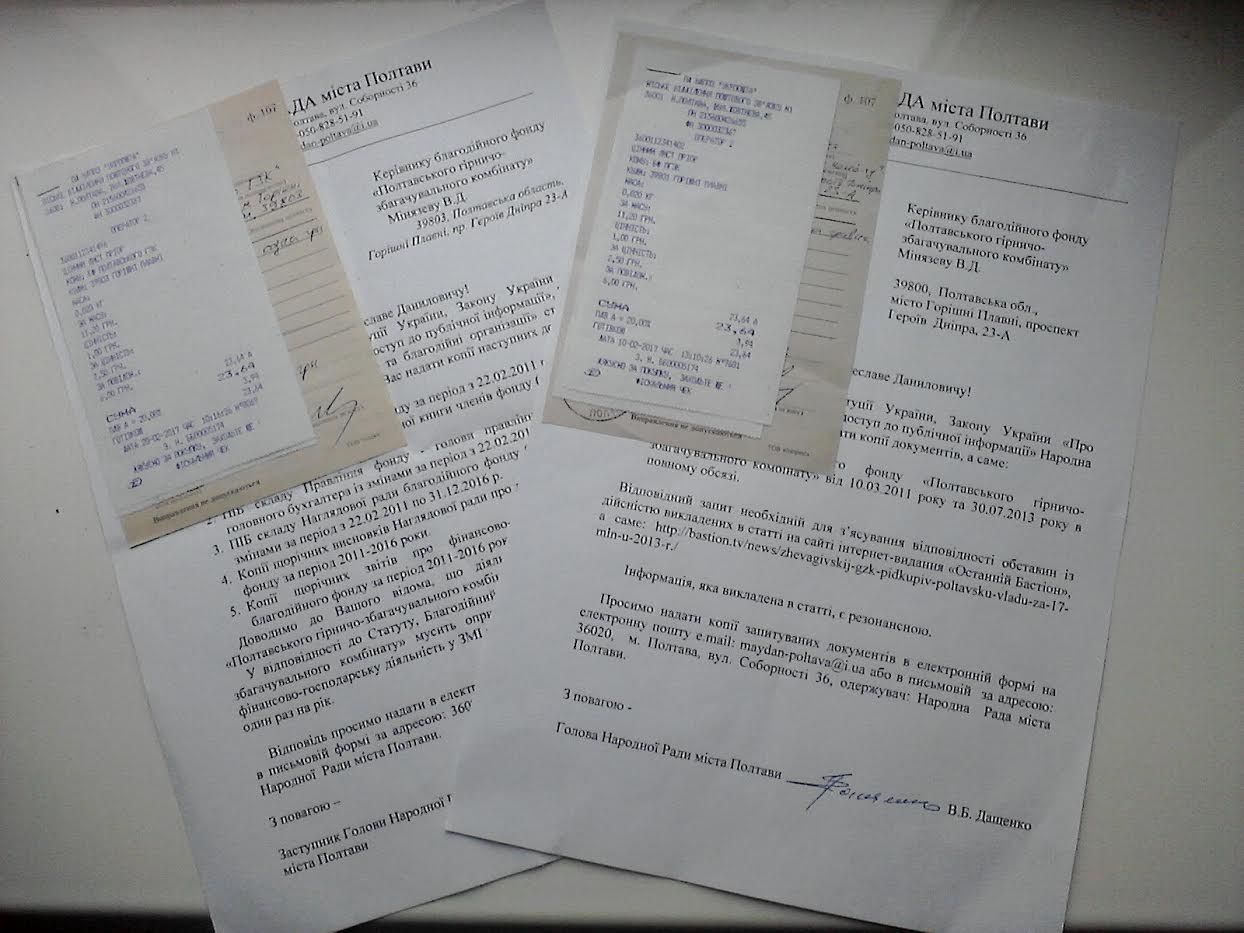 ф. 107
ДА міста Полтави
олтава, вул. Соборності 36
050-828-51-91
dan-poltava@i.ua
Керівнику благодійного фонду
«Полтавського гірничо-
збагачувального комбінату»
Мінязеву В.Д.
39803, Полтавська область,
Горішні Плавні, пр. Героїв Дніпра 23-А
еславе Даниловичу!
уції України, Закону України
оступ до публічної інформації»,
та благодійні організації» ст
Вас надати копії наступних до
ду за період з 22.02.2011 г
ої книги членів фонду (
2. ПІБ складу Правління фонду голови правлін
головного бухгалтера із змінами за період з 22.02.201
3. ПІБ складу Наглядової ради благодійного фонду
змінами за період з 22.02.2011 по 31.12.2016 р.
4. Копії щорічних висновків Наглядової ради про
фонду за період 2011-2016 роки.
5. Копії щорічних звітів про фінансово-
благодійного фонду за період 2011-2016 рок
Доводимо до Вашого відома, що діяль
«Полтавського гірничо-збагачувального комбін
У відповідності до Статуту, Благодійний
збагачувального комбінату» мусить опри
фінансово-господарську діяльність у ЗМІ
один раз на рік.
Відповідь просимо надати в елект
в письмовій формі за адресою: 360
Народної Ради міста Полтави.
З повагою –
Заступник Голови Народної
міста Полтави
ОПЕРАТОР 2
ЦІННИЙ ЛИСТ ПРІОР
КОМУ: БФ ПОЛТАВСЬКОГО ГЗК
КУДИ: 39803 ГОРІШНІ ПЛАВНІ
МАСА:
0,020 КГ
ЗА МАСУ:
11,20 ГРН.
ЦІННІСТЬ:
1,00 ГРН.
ЗА ЦІННІСТЬ:
2,50 ГРН.
ЗА ПОВІДОМ.:
6,00 ГРН.
23,64 А
СУМА 23,64
ПДВ А = 20,00% 3,94
ГОТІВКОЮ 23,64
ФІСКАЛЬНИЙ ЧЕК
Виправлення не допускаються
ф. 107
ДА міста Полтави
олтава, вул. Соборності 36
050-828-51-91
dan-poltava@i.ua
Керівнику благодійного фонду
«Полтавського гірничо-
збагачувального комбінату»
Мінязеву В.Д.
39800, Полтавська обл.,
місто Горішні Плавні, проспект
Героїв Дніпра, 23-А
еславе Даниловичу!
туції України, Закону України «Про
доступ до публічної інформації» Народна
ти копії документів, а саме:
о фонду «Полтавського гірничо-
збагачувального комбінату» від 10.03.2011 року та 30.07.2013 року в
повному обсязі.
Відповідний запит необхідній для з’ясування відповідності обставин із
дійсністю викладених в статті на сайті інтернет-видання «Останній Бастіон»,
а саме: http://bastion.tv/news/zhevagivskij-gzk-pidkupiv-poltavsku-vladu-za-17-
mln-u-2013-r./
Інформація, яка викладена в статті, є резонансною.
Просимо надати копії запитуваних документів в електронній формі на
електронну пошту e.mail: maydan-poltava@i.ua або в письмовій за адресою:
36020, м. Полтава, вул. Соборності 36, одержувач: Народна Рада міста
Полтави.
З повагою -
Голова Народної Ради міста Полтави В.Б. Дащенко
ОПЕРАТОР 2
3600112341402
ЦІННИЙ ЛИСТ ПРІОР
КОМУ: БФ ПГЗК
КУДИ: 39803 ГОРІШНІ ПЛАВНІ
МАСА:
0,020 КГ
ЗА МАСУ:
11,20 ГРН.
ЦІННІСТЬ:
1,00 ГРН.
ЗА ЦІННІСТЬ:
2,50 ГРН.
ЗА ПОВІДОМ.:
6,00 ГРН.
23,64 А
СУМА 23,64
ПДВ А = 20,00% 3,94
ГОТІВКОЮ 23,64
ДАТА 10-02-2017 ЧАС 13:10:26 №7601
ДЯКУЄМО ЗА ПОКУПКУ, ЗАХОДЬТЕ ЩЕ !
ФІСКАЛЬНИЙ ЧЕК
Виправлення не допускаються